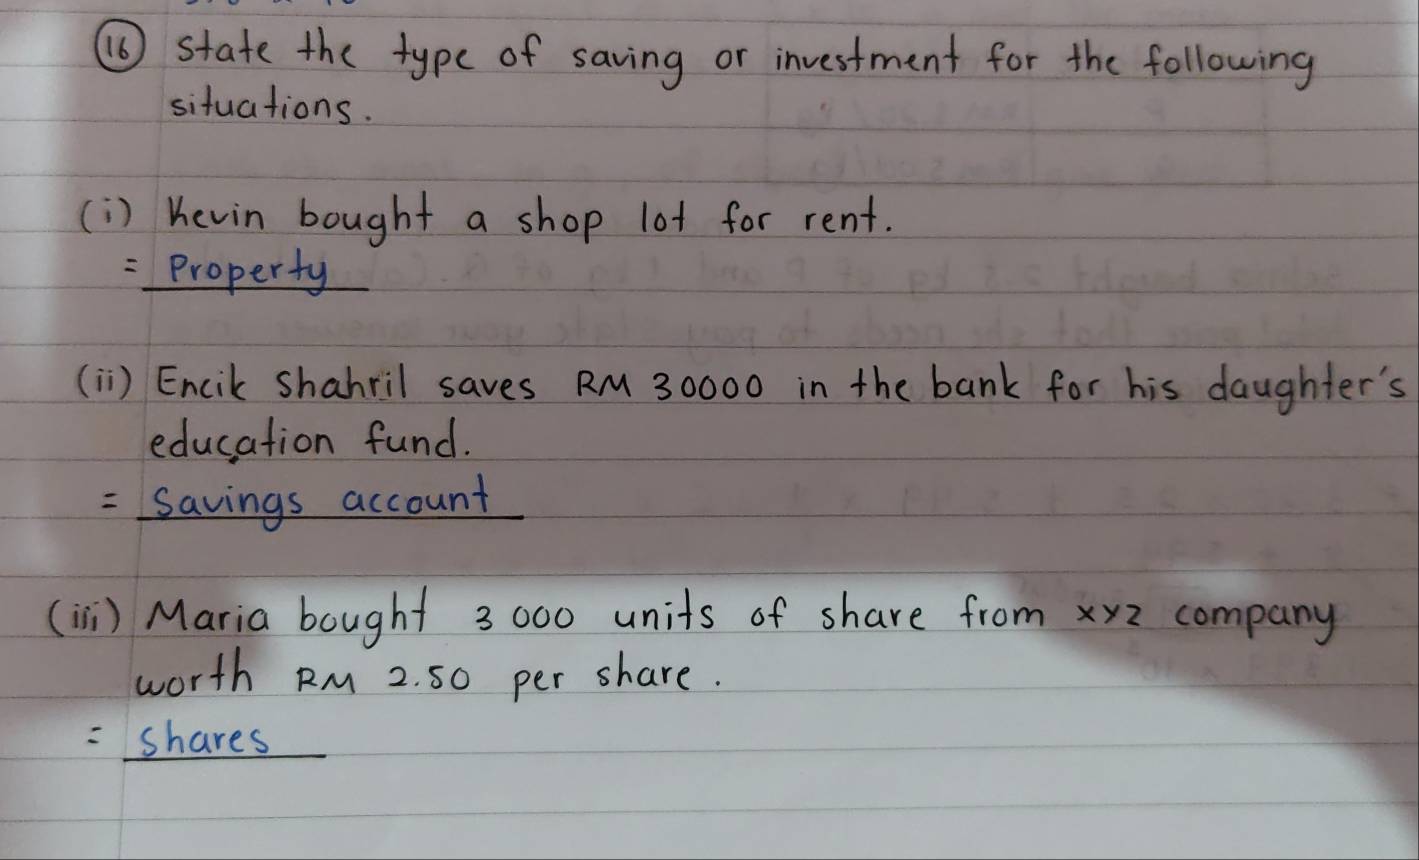 16 State the type of saving or investment for the following
situations.
(i) Kevin bought a shop lot for rent.
= Property
(ii) Encik Shahril saves RM 30000 in the bank for his daughter's
education fund.
= Savings account
(iii) Maria bought 3 000 units of share from xyz company
worth RM 2.50 per share.
= Shares